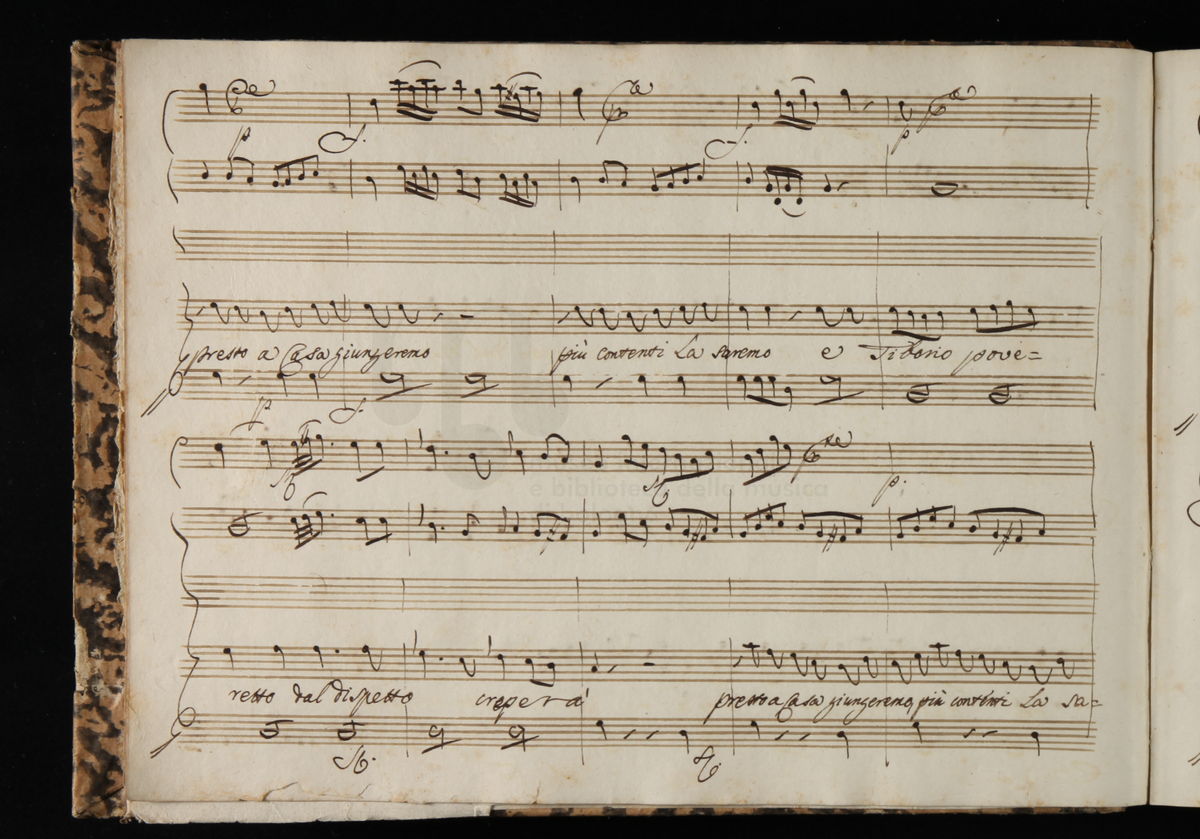 p f. f. p
presto a Casa giungeremo più contenti La saremo e Tiborio pove=
p f.
p.
e biblioteca della musica
retto dal dispetto creperà presto a Casa giungeremo, più contenti La sa=